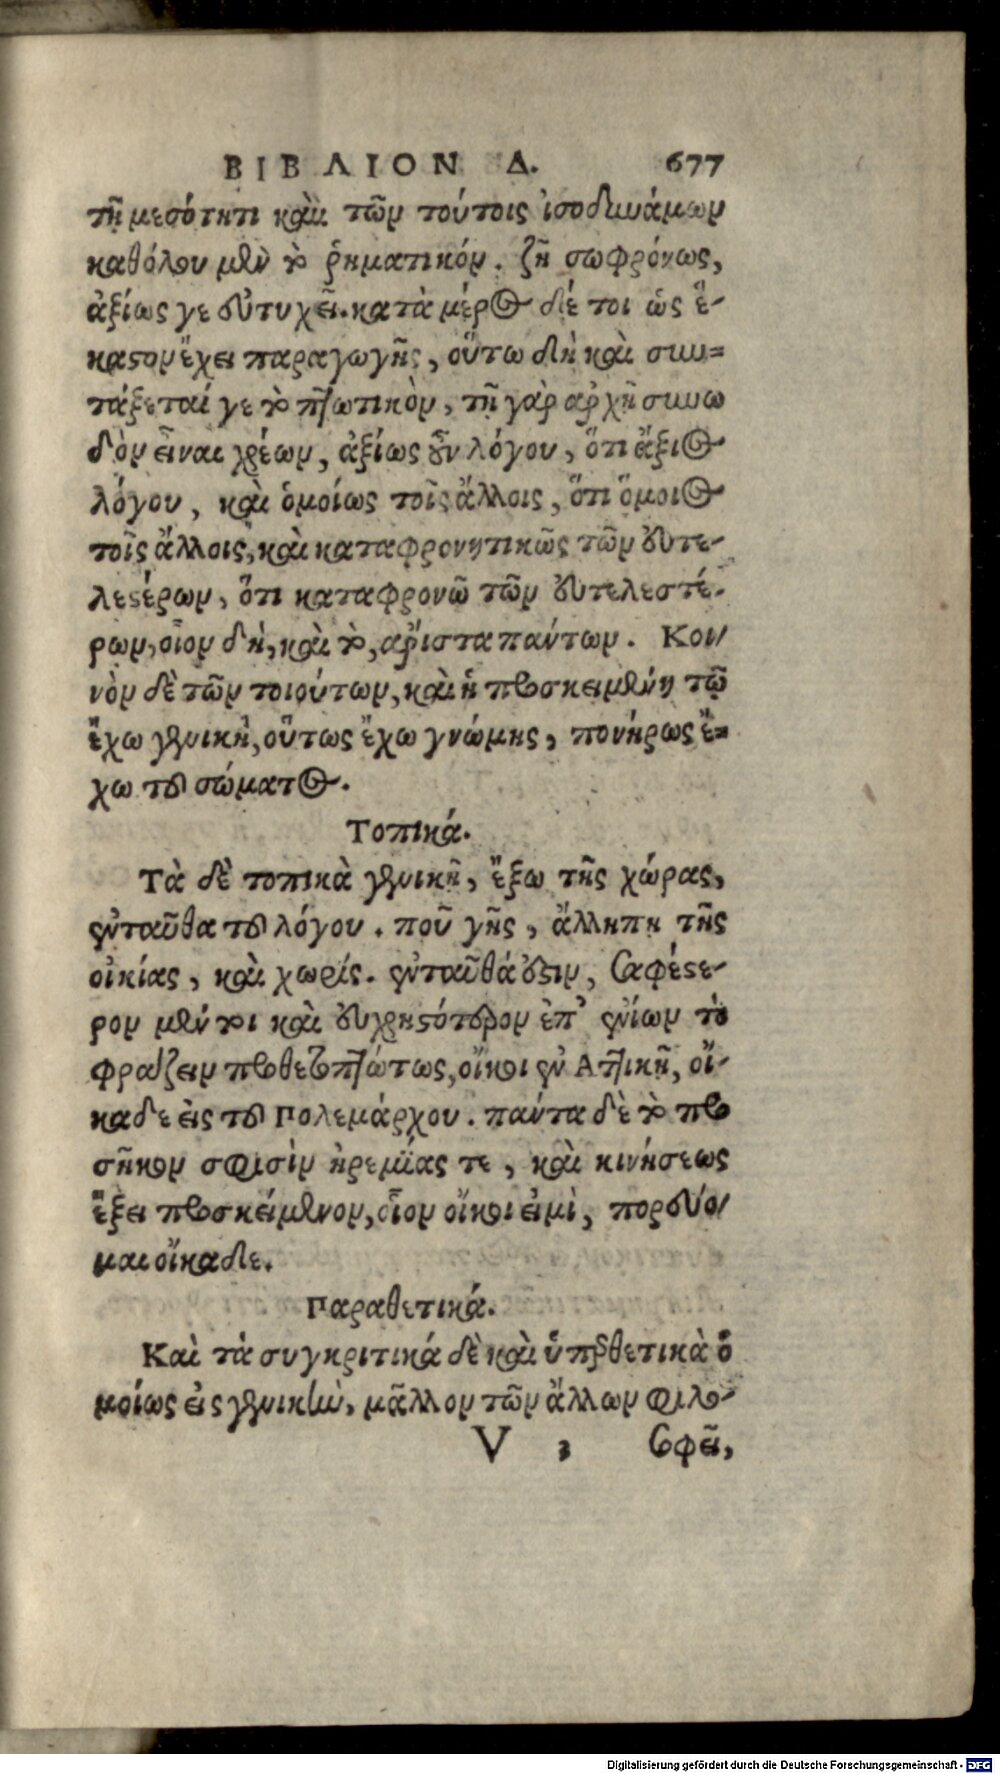 ΒΙΒΛΙΟΝ Δ. 677
τῇ μεσότητι καὶ τῶν τούτοις ἰσοδυνάμων
καθόλου μὲν τὸ ῥηματικόν. ζῆν σωφρόνως,
ἀξίως γε εὐτυχεῖ. κατὰ μέρος δέ τοι ὡς ἕ-
καστον ἔχει παραγωγῆς, οὕτω δὴ καὶ συν-
τάξεταί γε τὸ πτωτικὸν, τῇ γὰρ ἀρχῇ συνω
δὸν εἶναι χρέων, ἀξίως οὖν λόγου, ὅτι ἄξιος
λόγου, καὶ ὁμοίως τοῖς ἄλλοις, ὅτι ὅμοιος
τοῖς ἄλλοις, καὶ καταφρονητικῶς τῶν εὐτε-
λεστέρων, ὅτι καταφρονῶ τῶν εὐτελεστέ-
ρων, οἷον δὴ, καὶ τὸ, ἄριστα πάντων. Κοι-
νὸν δὲ τῶν τοιούτων, καὶ ἡ προσκειμένη τῷ
ἔχω γενικὴ, οὕτως ἔχω γνώμης, πονήρως ἔ-
χω τοῦ σώματος.
Τοπικά.
Τὰ δὲ τοπικὰ γενικῇ, ἔξω τῆς χώρας,
ἐνταῦθα τοῦ λόγου. ποῦ γῆς, ἄλληπη τῆς
οἰκίας, καὶ χωρίς. ἐνταῦθά ἐστιν, σαφέστε-
ρον μέν τοι καὶ εὐχρηστότερον ἐπ' ἐνίων τὸ
φράζειν προθετοπτώτως, οἴκοι ἐν Ἀττικῇ, οἴ-
καδε εἰς τοῦ Πολεμάρχου. πάντα δὲ τὸ προ
σῆκον σφισὶν ἠρεμίας τε, καὶ κινήσεως
ἕξει προσκείμενον, οἷον οἴκοι εἰμὶ, πορεύο-
μαι οἴκαδε.
Παραθετικά.
Καὶ τὰ συγκριτικά δὲ καὶ ὑπερθετικὰ ὁ
μοίως εἰς γενικὴν, μᾶλλον τῶν ἄλλων φιλο-
V 3 σοφεῖ,
Digitalisierung gefördert durch die Deutsche Forschungsgemeinschaft - DFG